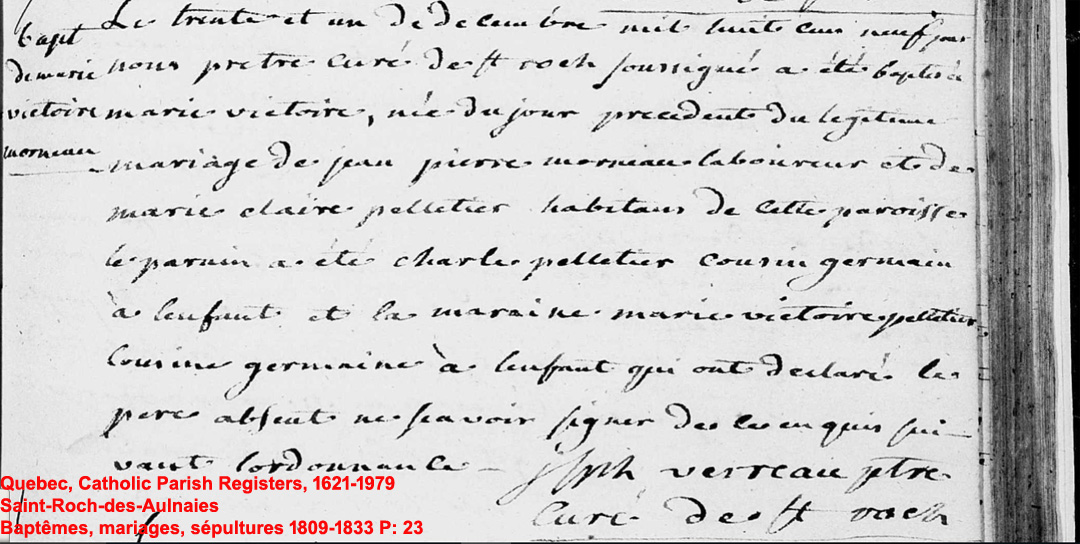 bapt
de marie
victoire
morneau
Le trente et un de decembre mil huit cens neuf par
nous pretre curé de st roch soussigné a été baptisée
marie victoire, née du jour precedent du legitime
mariage de jean pierre morneau laboureur et de
marie claire pelletier habitans de cette paroisse
le parain a été charle pelletier cousin germain
à lenfant et la maraine marie victoire pelletier
cousine germaine à lenfant qui ont declaré le
pere absent ne scavoir signer de ce enquis sui-
vant lordonnance — Jsph verreau ptre
curé de st roch
Quebec, Catholic Parish Registers, 1621-1979
Saint-Roch-des-Aulnaies
Baptêmes, mariages, sépultures 1809-1833 P: 23